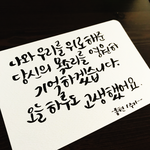 나와 우리를 위로해준
당신의 목소리를 영원히
기억하겠습니다.
오늘 하루도 고생했어요.